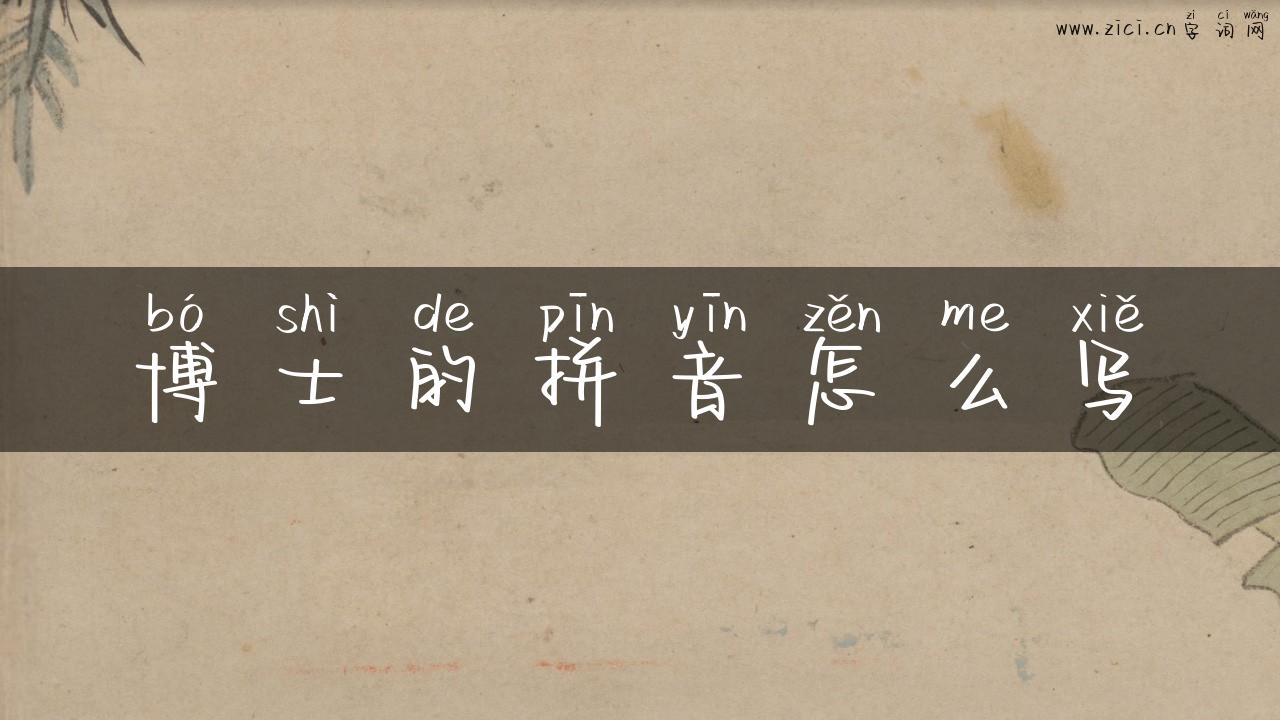 zì cí wǎng
www.zici.cn 字 词 网
bó shì de pīn yīn zěn me xiě
博 士 的 拼 音 怎 么 写